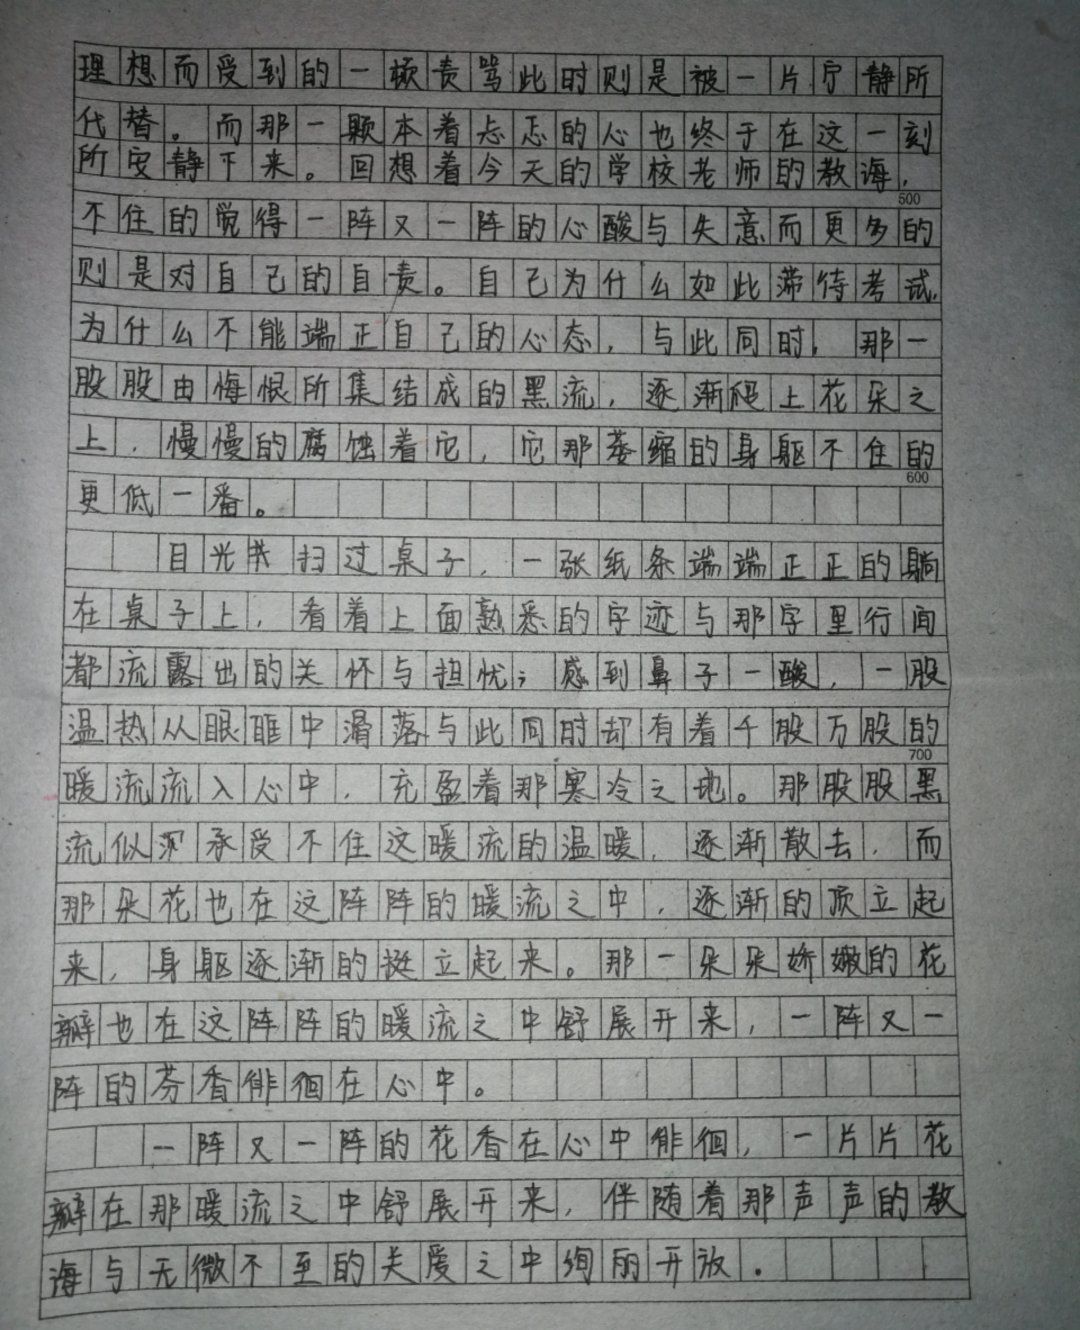 理想而受到的一顿责骂此时则是被一片宁静所
代替。而那一颗本着忐忑的心也终于在这一刻
所安静下来。回想着今天的学校老师的教海,
500
不住的觉得一阵又一阵的心酸与失意而更多的
则是对自己的自责。自己为什么如此滞待考试,
为什么不能端正自己的心态,与此同时,那一
股股由悔恨所集结成的黑流,逐渐爬上花朵之
上,慢慢的腐蚀着它,它那萎缩的身躯不住的
600
更低一番。
目光扫过桌子,一张纸条端端正正的躺
在桌子上,看着上面熟悉的字迹与那字里行间
都流露出的关怀与担忧;感到鼻子一酸,一股
温热从眼眶中滑落与此同时却有着千股万股的
700
暖流流入心中,充盈着那寒冷之地。那股股黑
流似承受不住这暖流的温暖,逐渐散去,而
那朵花也在这阵阵的暖流之中,逐渐的顶立起
来,身躯逐渐的挺立起来。那一朵朵娇嫩的花
瓣也在这阵阵的暖流之中舒展开来,一阵又一
阵的芬香徘徊在心中。
一阵又一阵的花香在心中徘徊,一片片花
瓣在那暖流之中舒展开来,伴随着那声声的教
海与无微不至的关爱之中绚丽开放。